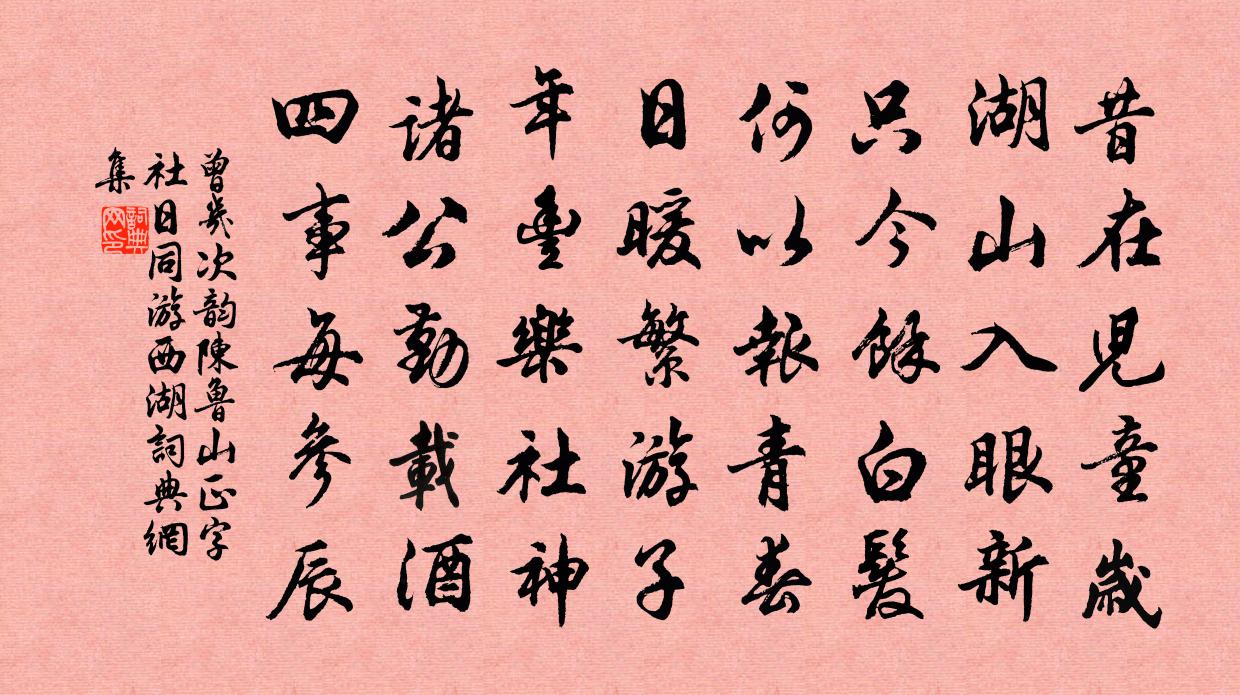 昔在兒童歲
湖山入眼新
只今餘白髮
何以報青春
日暖繁游子
年豐樂社神
諸公勤載酒
四事每參辰
曾幾次韵陳魯山正字
社日同游西湖詞典網
集
詞典
网印